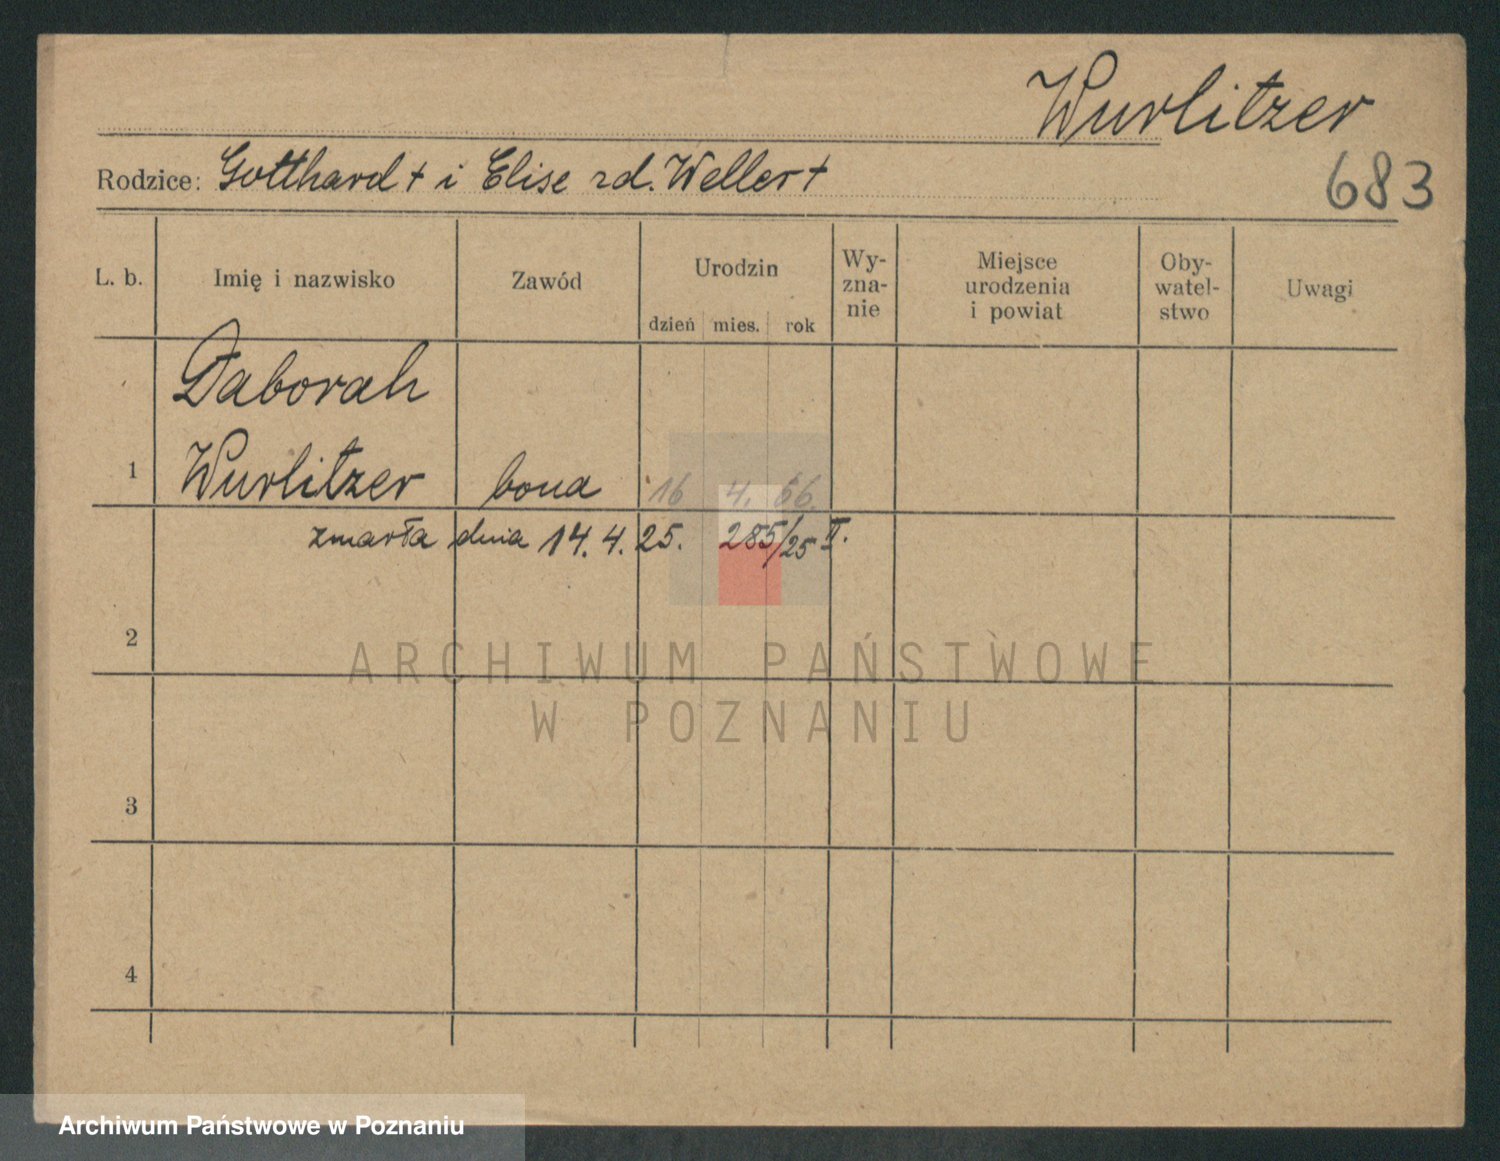 Wurlitzer
Rodzice: Gotthard + i Elise rd. Weller +
683
L. b.
Imię i nazwisko
Zawód
Urodzin
dzień mies. rok
Wy-
zna-
nie
Miejsce
urodzenia
i powiat
Oby-
watel-
stwo
Uwagi
Daborah
1 Wurlitzer bona 16 4. 66.
zmarła dnia 14. 4. 25. 285/25 II.
2
ARCHIWUM PAŃSTWOWE
W POZNANIU
3
4
Archiwum Państwowe w Poznaniu